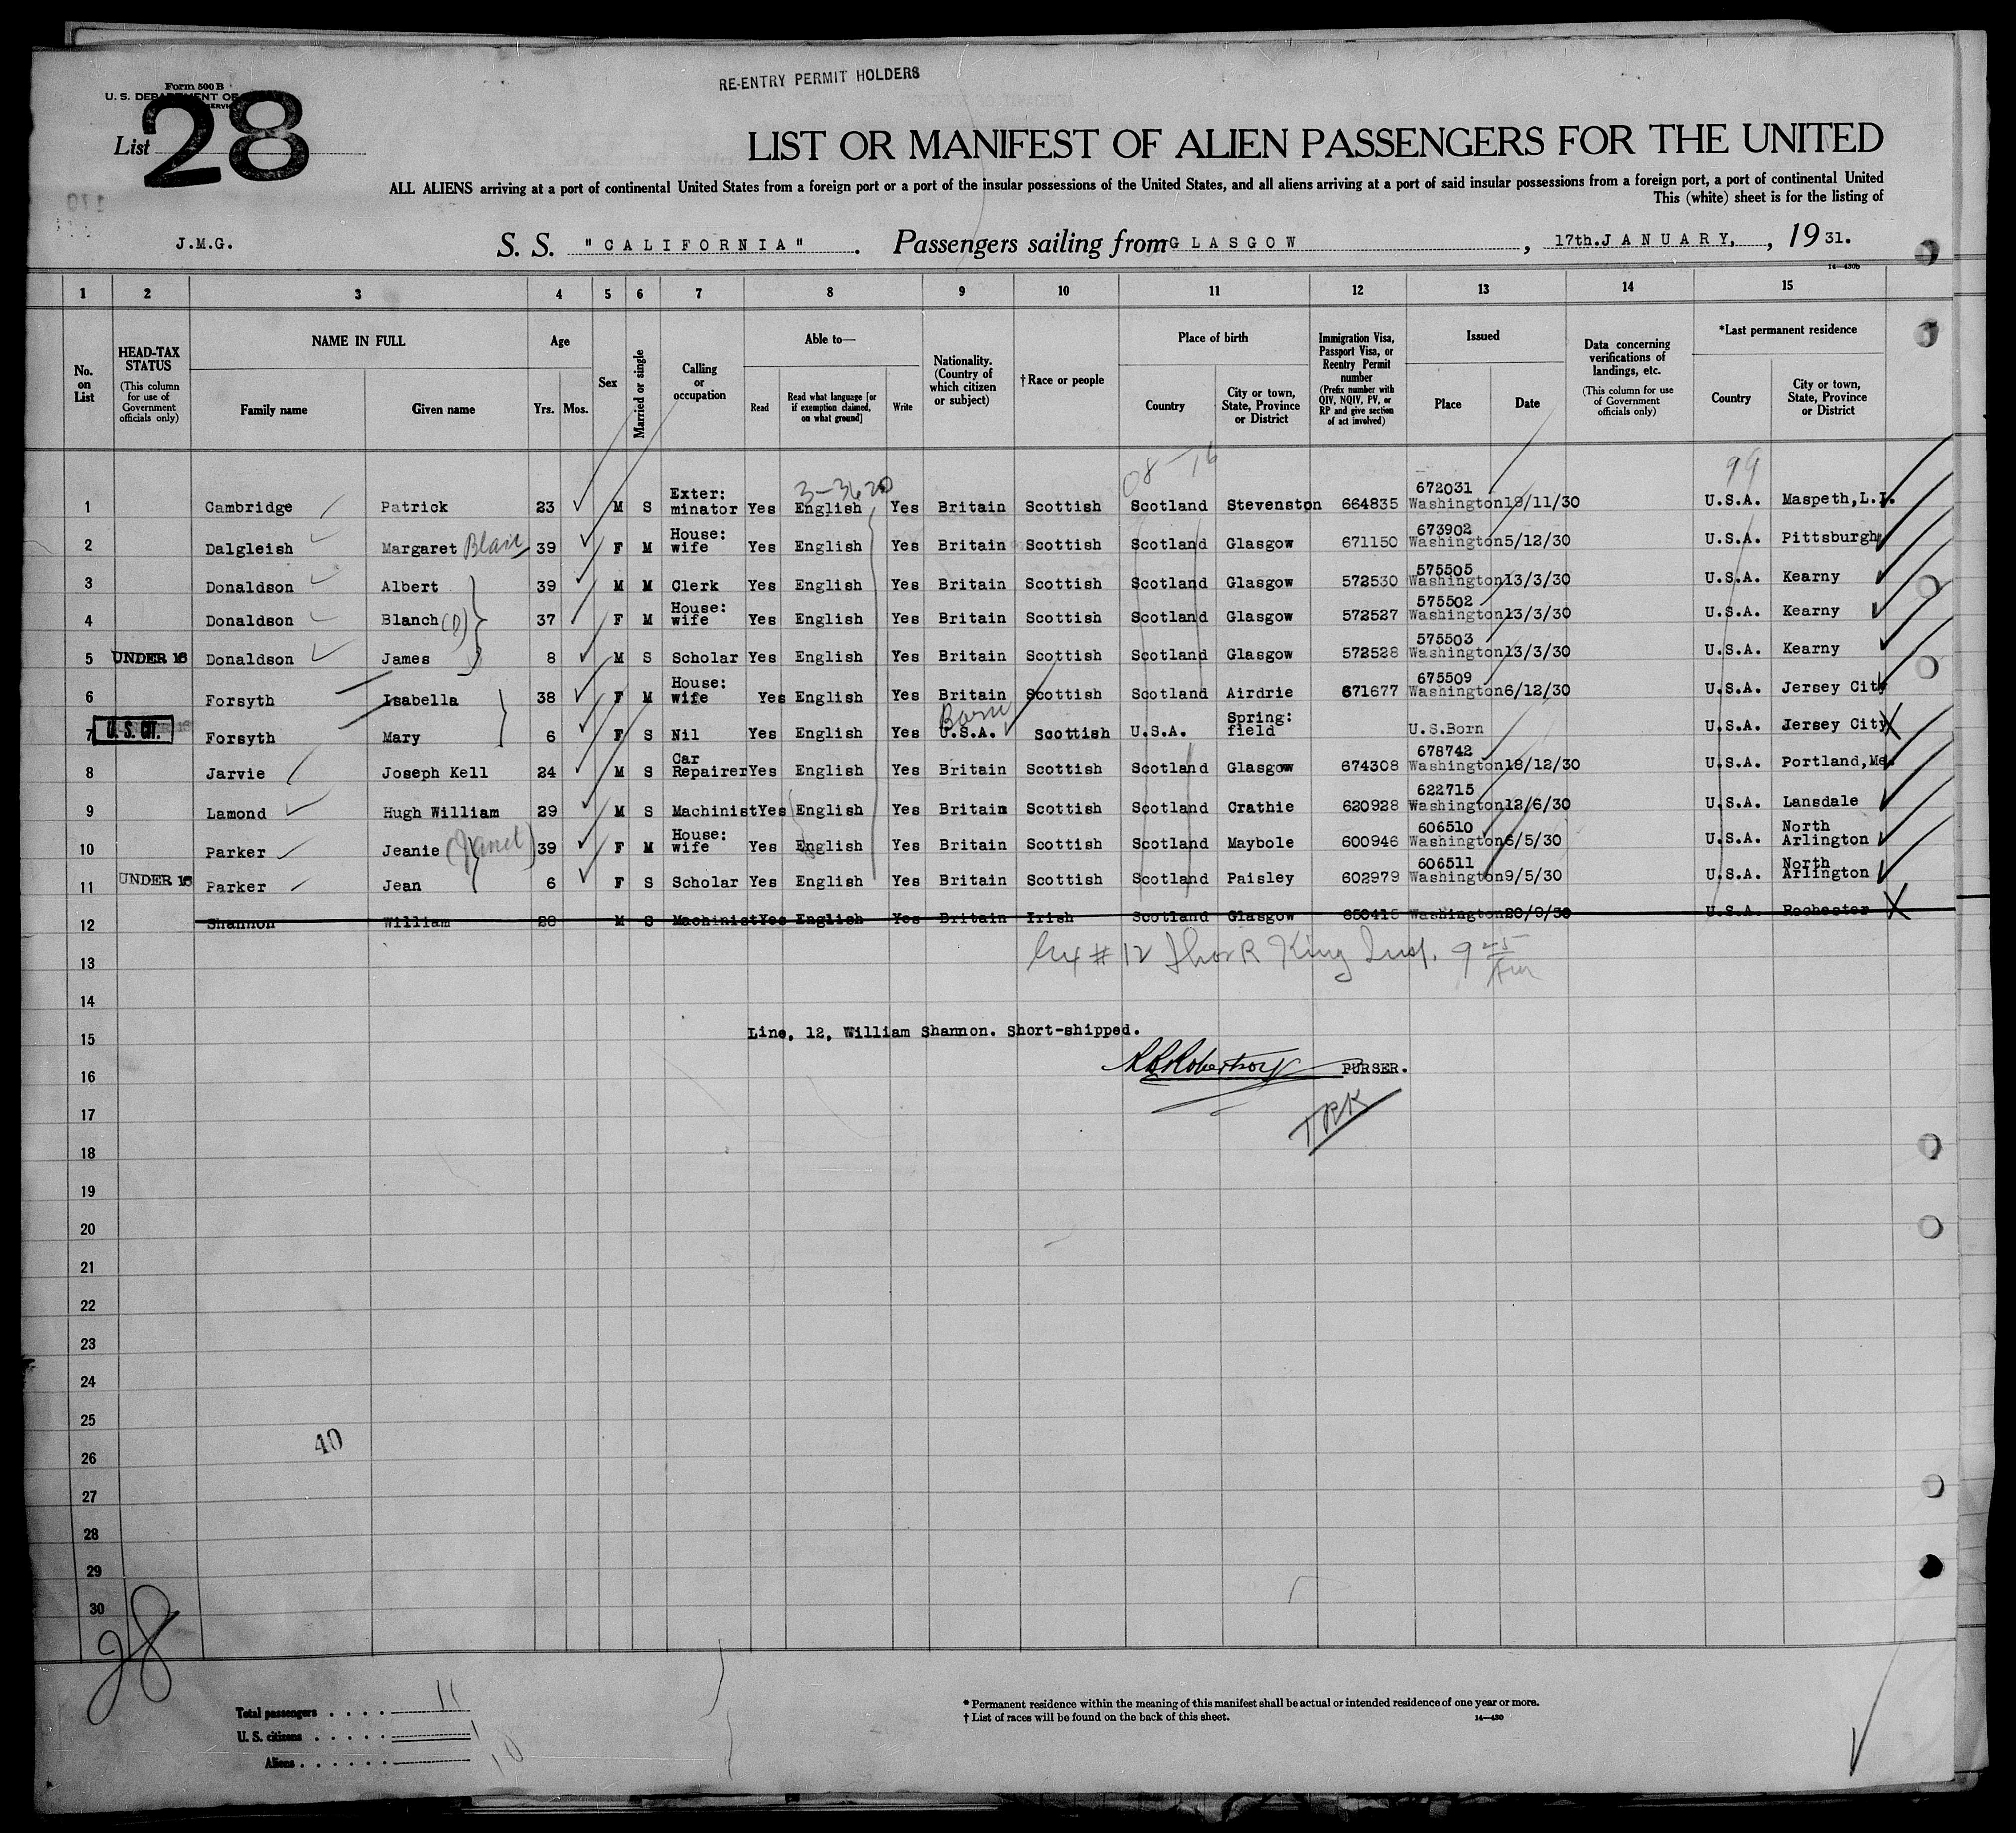 RE-ENTRY PERMIT HOLDERS
Form 500 B
U. S. DEPARTMENT OF
List 28
LIST OR MANIFEST OF ALIEN PASSENGERS FOR THE UNITED
ALL ALIENS arriving at a port of continental United States from a foreign port or a port of the insular possessions of the United States, and all aliens arriving at a port of said insular possessions from a foreign port, a port of continental United
This (white) sheet is for the listing of
J.M.G. S. S. "CALIFORNIA". Passengers sailing from GLASGOW, 17th.JANUARY,, 1931.
14—430b
1 2 3 4 5 6 7 8 9 10 11 12 13 14 15
No. on List
HEAD-TAX STATUS (This column for use of Government officials only)
NAME IN FULL Family name Given name
Age Yrs. Mos.
Sex
Married or single
Calling or occupation
Able to— Read Read what language [or if exemption claimed, on what ground] Write
Nationality. (Country of which citizen or subject)
†Race or people
Place of birth Country City or town, State, Province or District
Immigration Visa, Passport Visa, or Reentry Permit number (Prefix number with QIV, NQIV, PV, or RP and give section of act involved)
Issued Place Date
Data concerning verifications of landings, etc. (This column for use of Government officials only)
*Last permanent residence Country City or town, State, Province or District
3-3620 08-16 99
1 Cambridge Patrick 23 M S Exter: minator Yes English Yes Britain Scottish Scotland Stevenston 664835 672031 Washington 19/11/30 U.S.A. Maspeth,L.I.
2 Dalgleish Margaret Blair 39 F M House: wife Yes English Yes Britain Scottish Scotland Glasgow 671150 673902 Washington 5/12/30 U.S.A. Pittsburgh
3 Donaldson Albert 39 M M Clerk Yes English Yes Britain Scottish Scotland Glasgow 572530 575505 Washington 13/3/30 U.S.A. Kearny
4 Donaldson Blanch (D) 37 F M House: wife Yes English Yes Britain Scottish Scotland Glasgow 572527 575502 Washington 13/3/30 U.S.A. Kearny
5 UNDER 16 Donaldson James 8 M S Scholar Yes English Yes Britain Scottish Scotland Glasgow 572528 575503 Washington 13/3/30 U.S.A. Kearny
6 Forsyth Isabella 38 F M House: wife Yes English Yes Britain Scottish Scotland Airdrie 671677 675509 Washington 6/12/30 U.S.A. Jersey City
7 U.S. CIT. Forsyth Mary 6 F S Nil Yes English Yes Born U.S.A. Scottish U.S.A. Spring: field U.S.Born U.S.A. Jersey City X
8 Jarvie Joseph Kell 24 M S Car Repairer Yes English Yes Britain Scottish Scotland Glasgow 674308 678742 Washington 18/12/30 U.S.A. Portland,Me.
9 Lamond Hugh William 29 M S Machinist Yes English Yes Britain Scottish Scotland Crathie 620928 622715 Washington 12/6/30 U.S.A. Lansdale
10 Parker Jeanie (Janet) 39 F M House: wife Yes English Yes Britain Scottish Scotland Maybole 600946 606510 Washington 6/5/30 U.S.A. North Arlington
11 UNDER 16 Parker Jean 6 F S Scholar Yes English Yes Britain Scottish Scotland Paisley 602979 606511 Washington 9/5/30 U.S.A. North Arlington
12 Shannon William 28 M S Machinist Yes English Yes Britain Irish Scotland Glasgow 650415 Washington 20/9/30 U.S.A. Rochester X
# 12 King Insp.
13
14
15 Line, 12, William Shannon. Short-shipped.
16 Robertson PURSER.
17 TRK
18
19
20
21
22
23
24
25
40
26
27
28
29
30
28
Total passengers 11
U. S. citizens 1
Aliens 10
* Permanent residence within the meaning of this manifest shall be actual or intended residence of one year or more.
† List of races will be found on the back of this sheet. 14—430